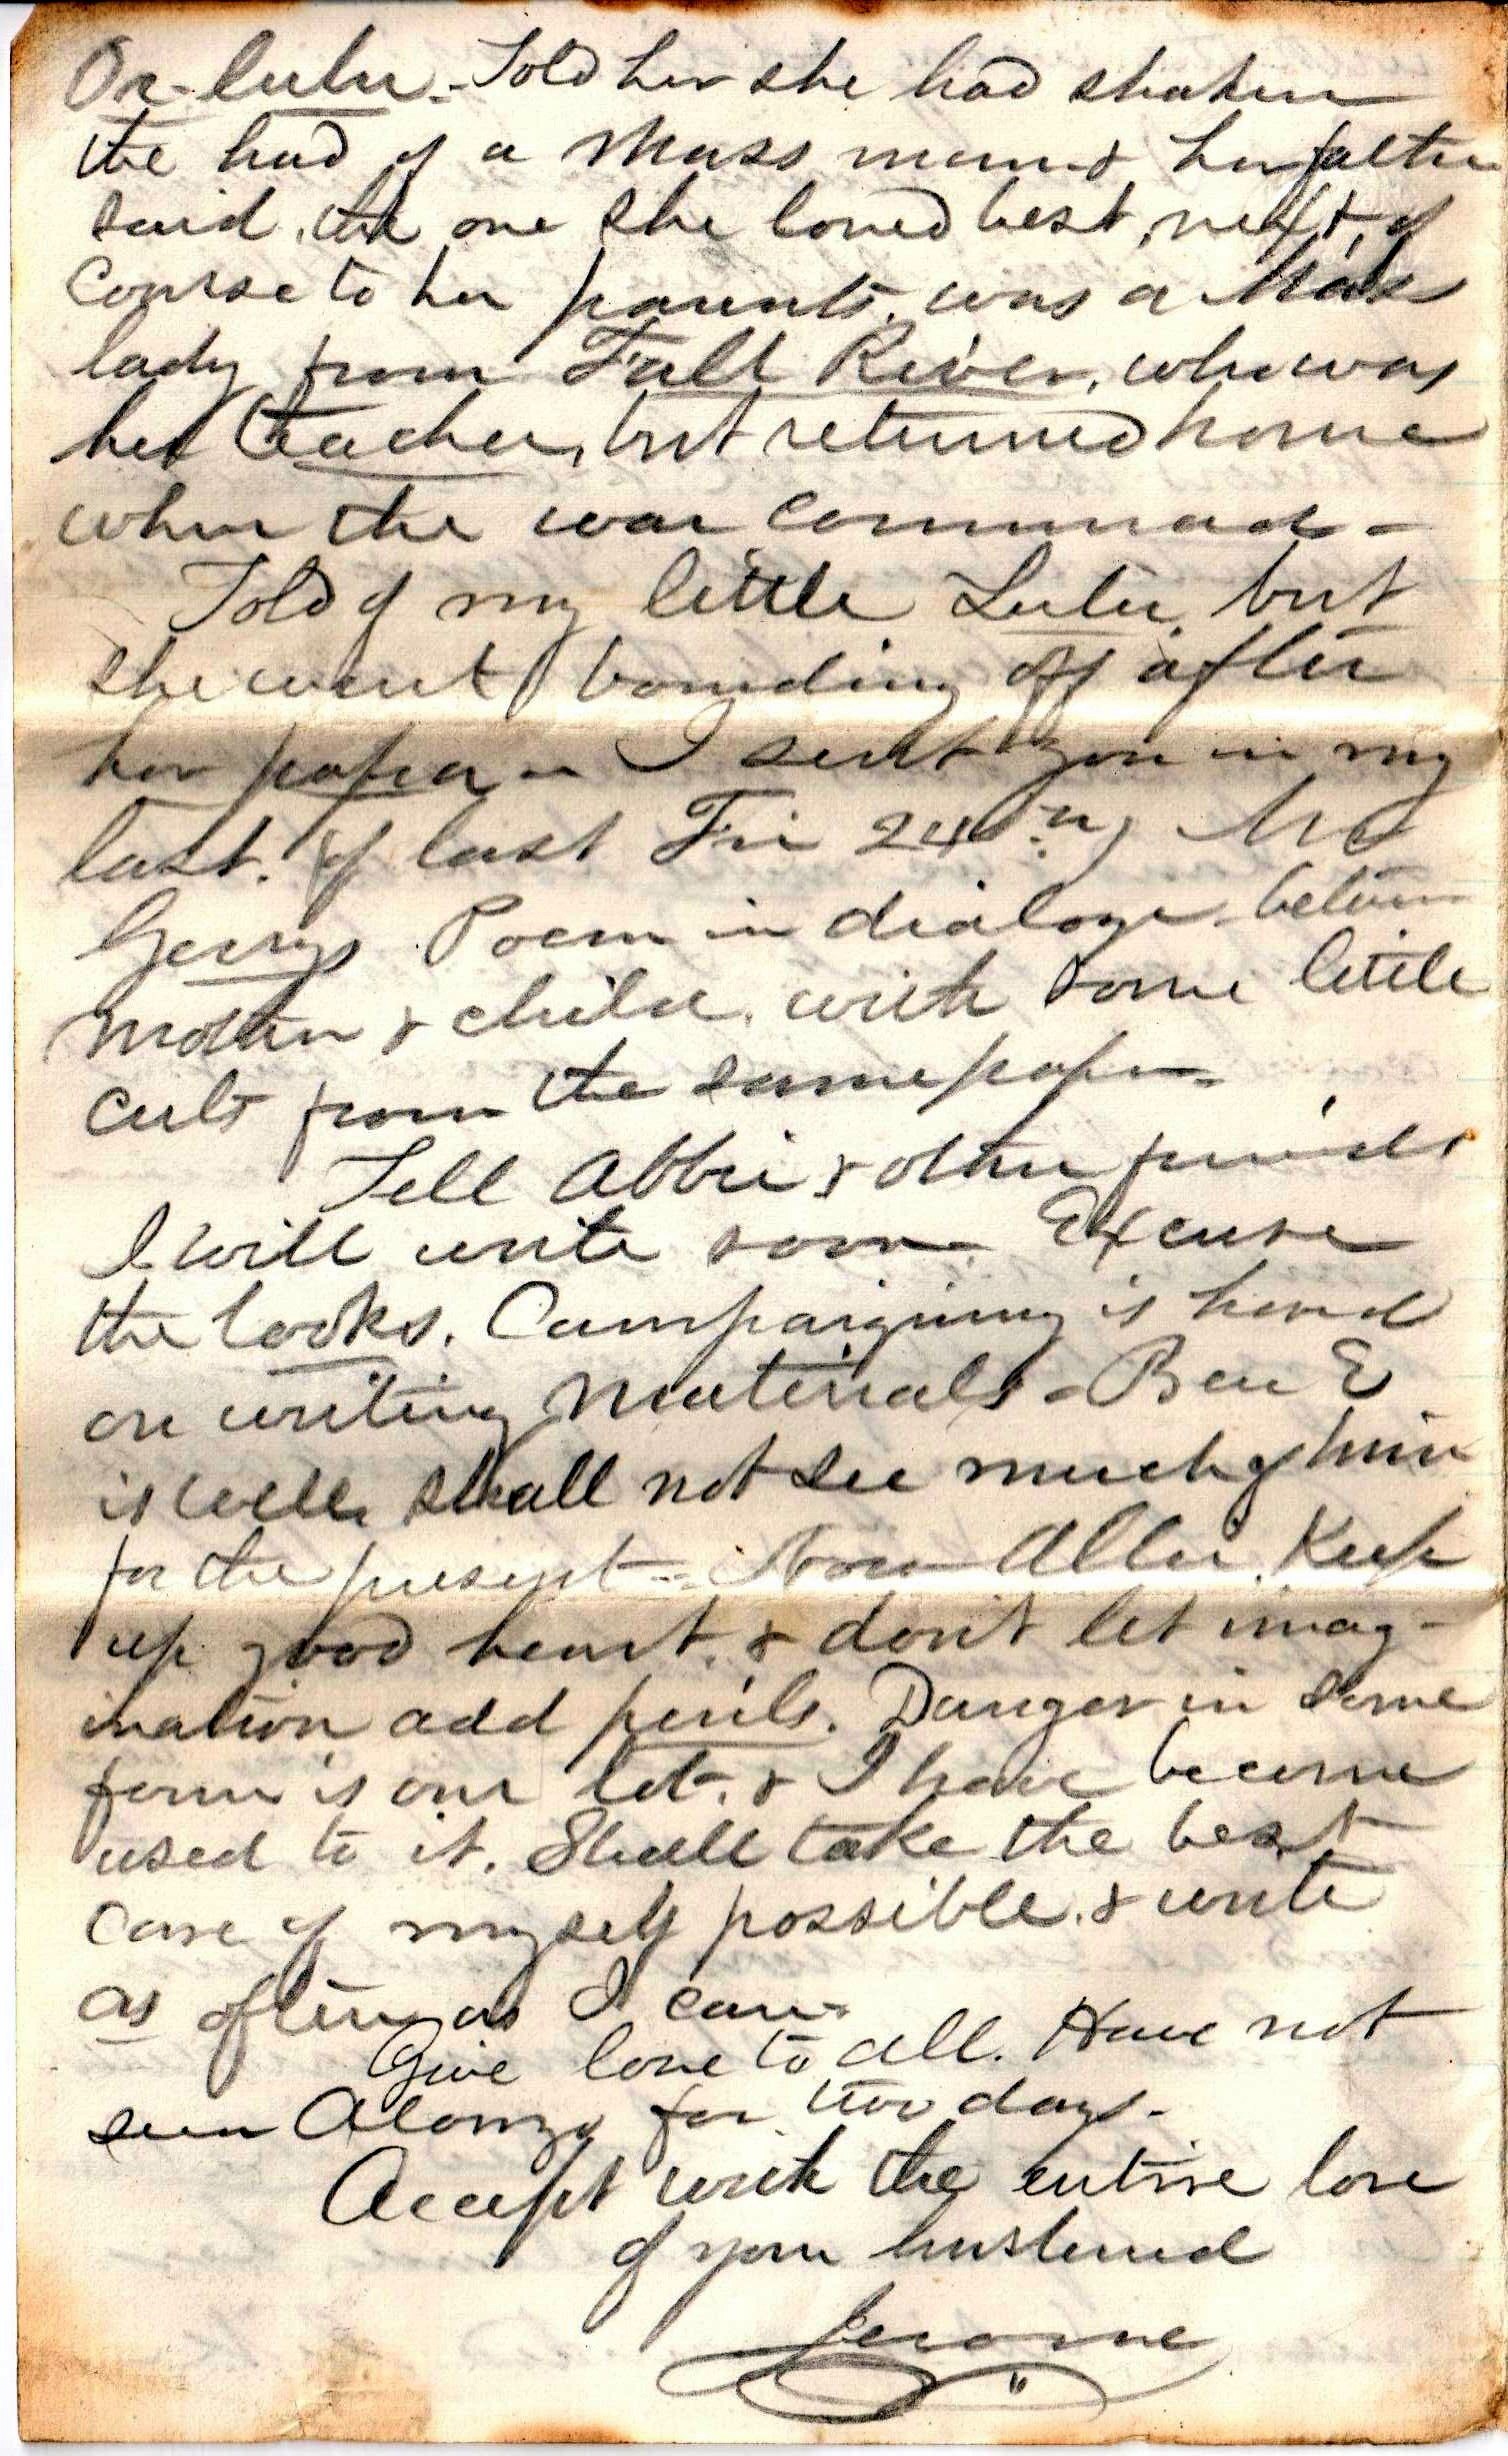 Or-lulu - Told her she had shaken
the hand of a Mass man & her father
said, the one she loved best, next, of
Course to her parents, was a Mass
lady from Fall River, who was
her teacher, but returned home
when the war commenced -
Told of my little Lulu, but
she went bounding off after
her papa - I sent you in my
last, of last Fri 24th
Gerrys Poem in dialoge between
Mother & child, with some little
cuts from the same paper -
Tell Abbie & other friends
I will write soon - Excuse
the looks. Campaigning is hard
on writing materials - Ben E
is well, shall not see much of him
for the present - Now Allie, Keep
up good heart, & don't let imag-
ination add perils. Danger in some
form is our lot, & I have become
used to it. Shall take the best
care of myself possible, & write
as often as I can -
Give love to all. Have not
seen Alonzo for two days -
Accept with the entire love
of your husband
Jerome